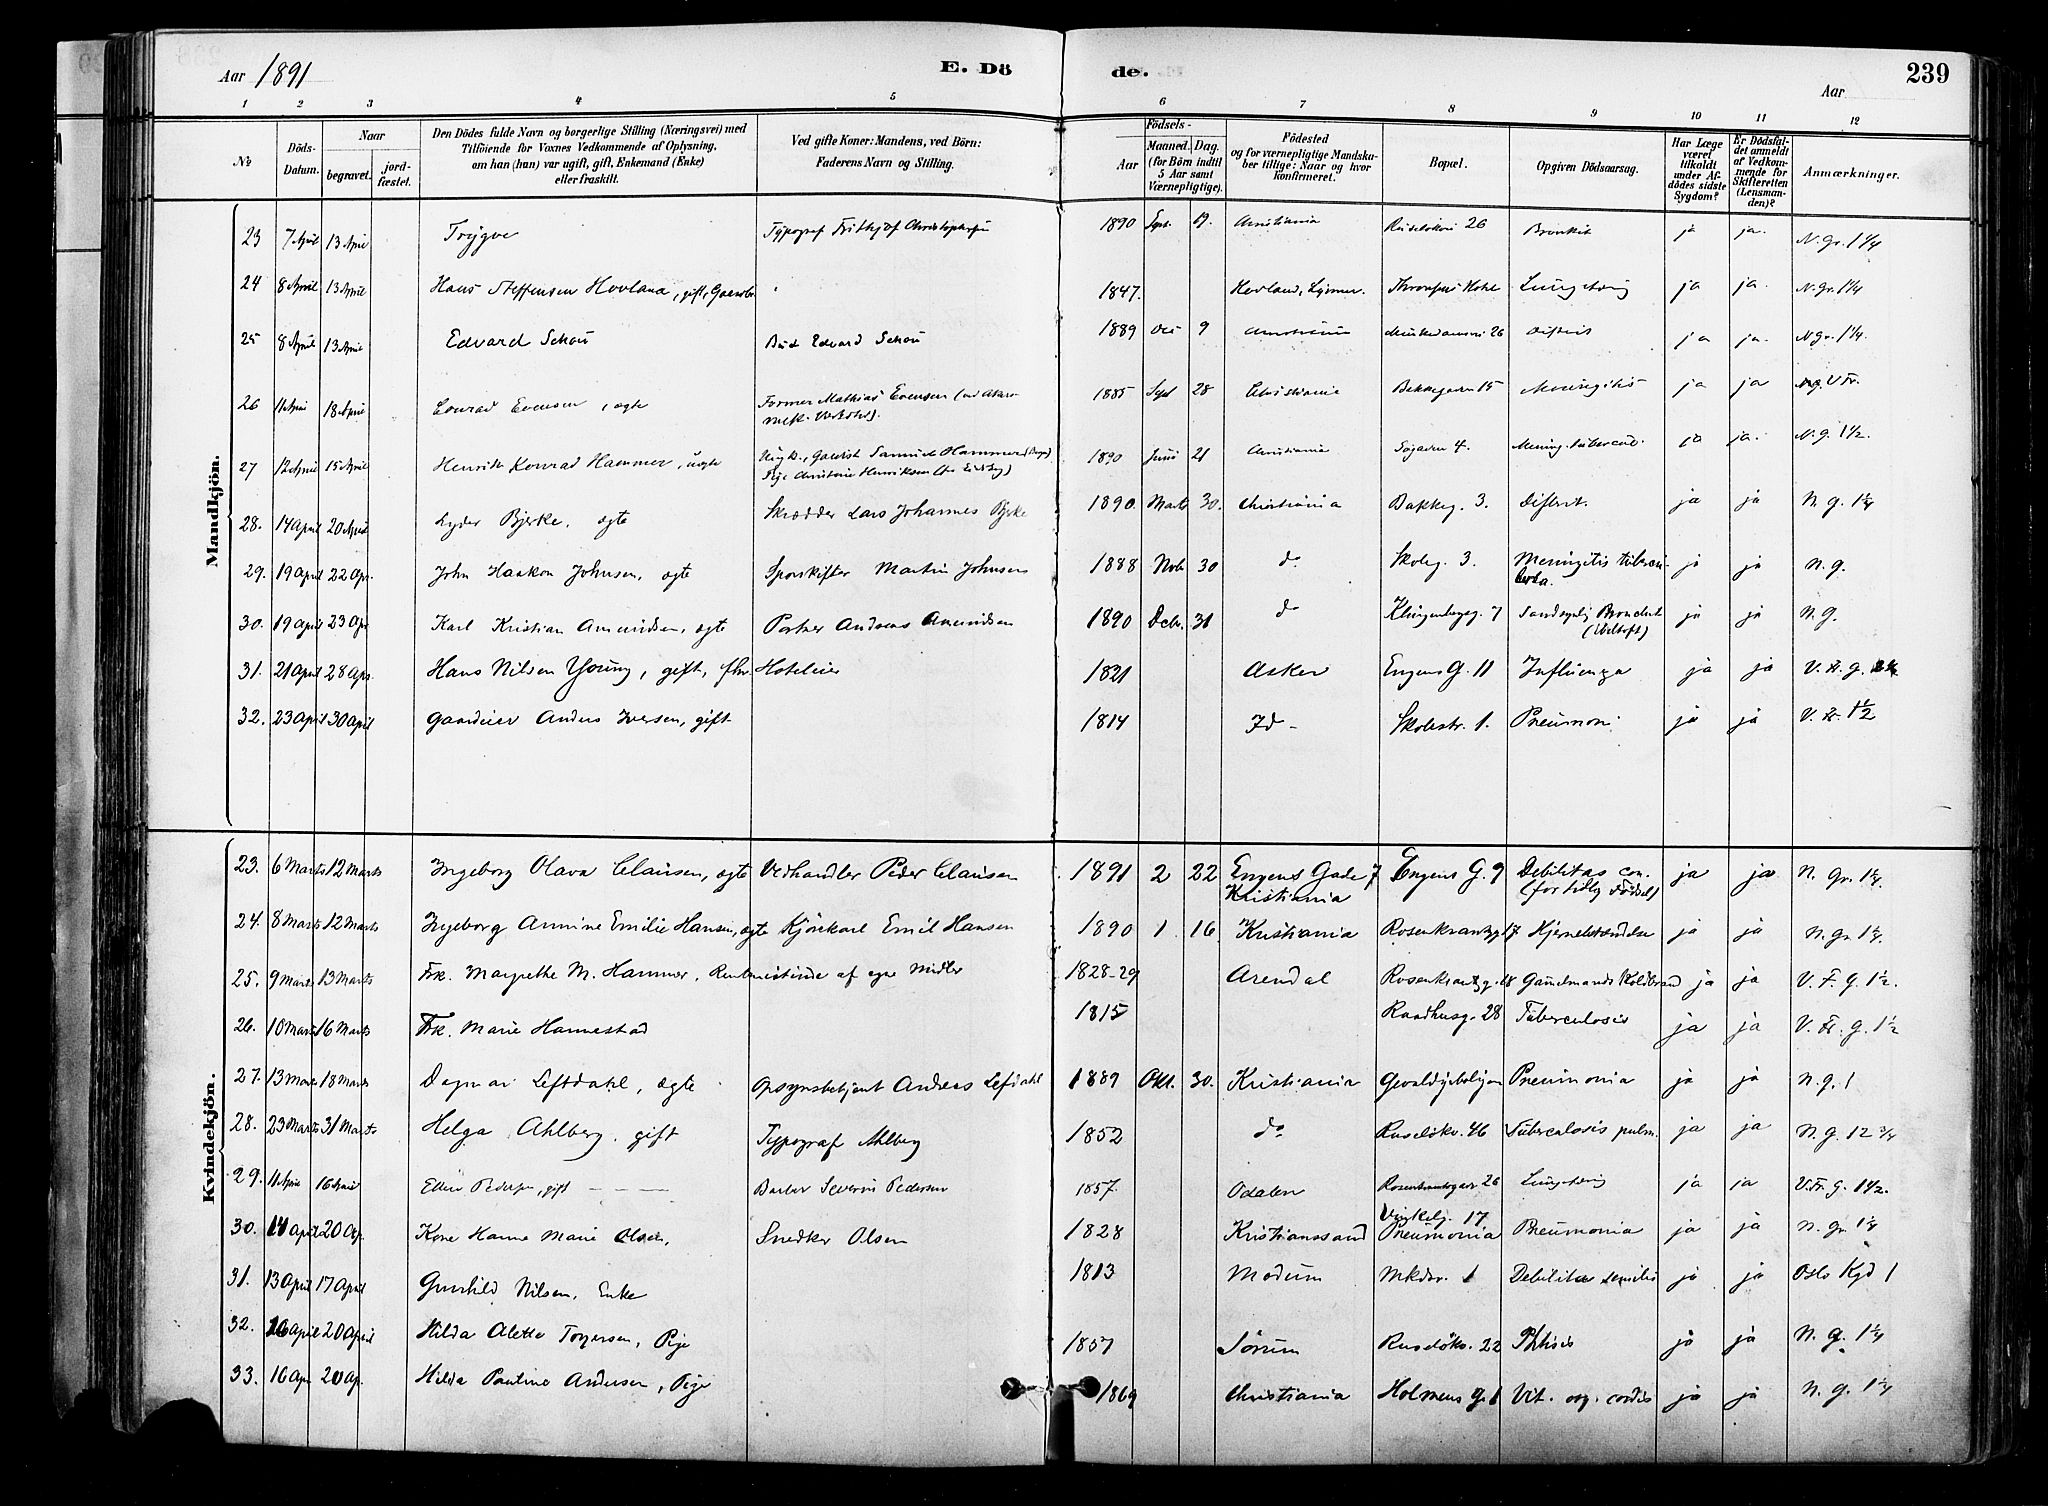 Aar 1891
E. Dö
de.
Aar
239
1 2 3 4 5 6 7 8 9 10 11 12
No
Döds-Datum.
Naar
begravet.
jord-fæstet.
Den Dödes fulde Navn og borgerlige Stilling (Næringsvei) med
Tilföiende for Voxnes Vedkommende af Oplysning,
om han (hun) var ugift, gift, Enkemand (Enke)
eller fraskilt.
Ved gifte Koner: Mandens, ved Börn:
Faderens Navn og Stilling.
Födsels-
Aar
Maaned. Dag.
(for Börn indtil
5 Aar samt
Værnepligtige).
Födested
og for værnepligtige Mandska-
ber tillige: Naar og hvor
konfirmeret.
Bopæl.
Opgiven Dödsaarsag.
Har Læge
været
tilkaldt
under Af-
dödes sidste
Sygdom?
Er Dödsfal-
det anmeldt
af Vedkom-
mende for
Skifteretten
(Lensman-
den)?
Anmærkninger.
Mandkjön.
23 7 April 13 April Trygve Typograf Frithjof 1890 Sept. 19. Christiania 26 Bronkit ja ja. N. Gr. 1 1/4
24 8 April 13 April Hans Steffensen Hovland, gift, 1847. Hovland, ja ja. N. Gr. 1 1/4
25 8 April 13 April Edvard Schou Bud Edvard Schou 1889 9 Christiania 26 ja ja. N. Gr. 1 1/4.
26 11 April 18 April Conrad Evensen, ægte Former Mathias Evensen (ved Akers
mek. Værksted). 1885 Sept 28 Christiania 15 Meningitis ja ja
27 12 April 15 April Henrik Konrad Hammer, uægte Samuel Hammer
Pige Christine Henriksen 1890 Juni 21 Christiania 4. Mening. tubercul. ja ja. N. g. 1 1/2.
28. 14 April 20 April Lyder Bjerke, ægte Skrædder Lars Johannes Bjerke 1890. Marts 30. Christiania Bakkeg. 3. Difterit. ja ja N. g. 1 1/4
29. 19 April 22 Apr. John Haakon Johnsen, ægte Sporskifter Martin Johnsen 1888 Nob 30 do Skoleg. 3. Meningitis tubercu-
losa. ja ja N. g.
30. 19 April 23 Apr Karl Kristian Amundsen, ægte Portner Andreas Amundsen 1890 Debr. 31 do Klingenbergg. 7 Sandsynlig Bronchit
ja ja N. g.
31. 21 April 28 Apr. Hans Nilsen Young, gift, fhv. Hoteleier 1821 Asker Engens G. 11 Influenza ja ja V. Fr. g.
32. 23 April 30 April Gaardeier Anders Iversen, gift 1814 Id - Skolestr. 1. Pneumoni ja ja V. Fr. 1 1/2
Kvindekjön.
23. 6 Marts 12 Marts Ingeborg Olava Clausen, ægte Vedhandler Peder Clausen 1891 2 22 Engens Gade 7
Kristiania Engens G. 9 Debilitas con.
(for tidlig Födsel) ja ja N. Gr. 1 1/4.
24. 8 Marts 12 Marts Ingeborg Annine Emilie Hansen, ægte Kjörekarl Emil Hansen 1890 1. 16. Kristiania Rosenkrantzg 17 Hjernebetændelse ja ja N. gr. 1 1/4.
25. 9 Marts 13 Marts Frk. Margrethe M. Hammer, Rentenistinde af egne Midler 1828-29 Arendal Rosenkrantzg. 18 Gammelmands Koldbrand ja ja V. F. G. 1 1/2.
26. 10 Marts 16 Marts Frk. Marie Hannestad 1815 Raadhusg. 28 Tuberculosis ja ja V. Fr. g. 1 1/2
27. 13 Marts 18 Marts Dagmar Leftdahl, ægte Opsynsbetjent Anders Lefdahl 1889 Okt. 30. Kristiania Pneumonia ja ja N. g. 1
28. 23 Marts 31 Marts Helga Ahlberg, gift Typograf Ahlberg 1852 do Ruselökv. 46 Tuberculosis pulm. ja ja N. g. 12 3/4
29. 11 April 16 April Ellen Pedersen, gift Barber Severin Pedersen 1857. Odalen 26 ja ja V. Fr. G. 1 1/2.
30. 14 April 20 Ap. Kone Hanne Marie Olsen, Snedker Olsen 1828 Kristianssand Vinkelg. 17
Pneumonia Pneumonia ja ja N. gr. 1 1/4
31. 13 April 17 April Gunhild Nilsen, Enke 1813 Modum Mkdv. 1 Debilitas senilis ja ja Oslo Kgd 1
32. 16 April 20 April Hilda Alette Torgersen, Pige 1857 Sörum Ruselökv. 22 Phthisis ja ja N. g. 1 1/4
33. 16 Apr 20 Ap. Hilda Pauline Andersen, Pige 1869 Christiania Holmens G. 1 Vit. org. cordis ja ja N. g. 1 1/4